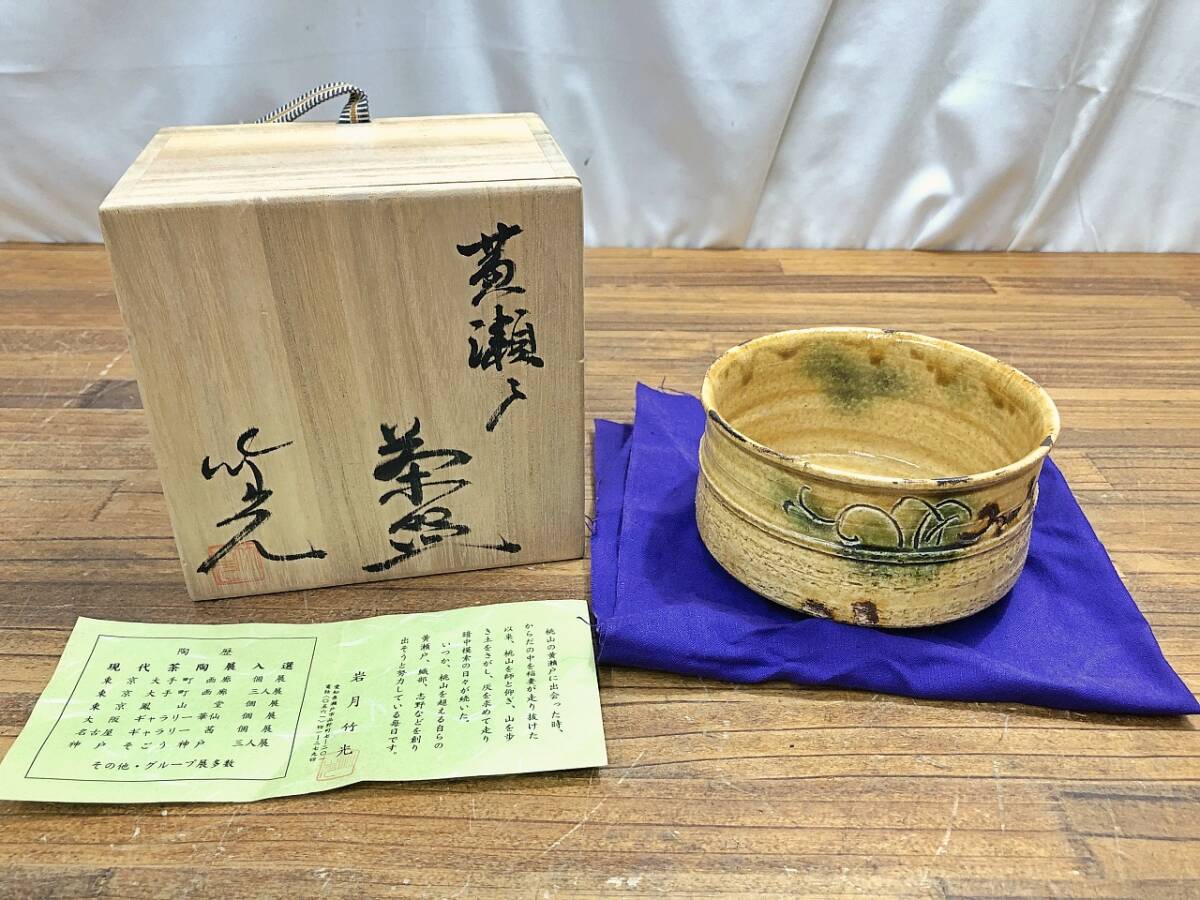 黄瀬戸
茶盌
竹光
桃山の黄瀬戸に出会った時、
からだの中を稲妻が走り抜けた
以来、桃山を師と仰ぎ、山を歩
き土をさがし、灰を求めて走り
暗中模索の日々が続いた。
いつか、桃山を越える自らの
黄瀬戸、織部、志野などを創り
出そうと努力している毎日です。
岩月竹光
陶歴
現代茶陶展入選
東京大手町画廊 個展
東京大手町画廊 三人展
東京鳳山堂 個展
大阪ギャラリー華仙 個展
名古屋ギャラリー茜 個展
神戸そごう神戸 三人展
その他・グループ展多数